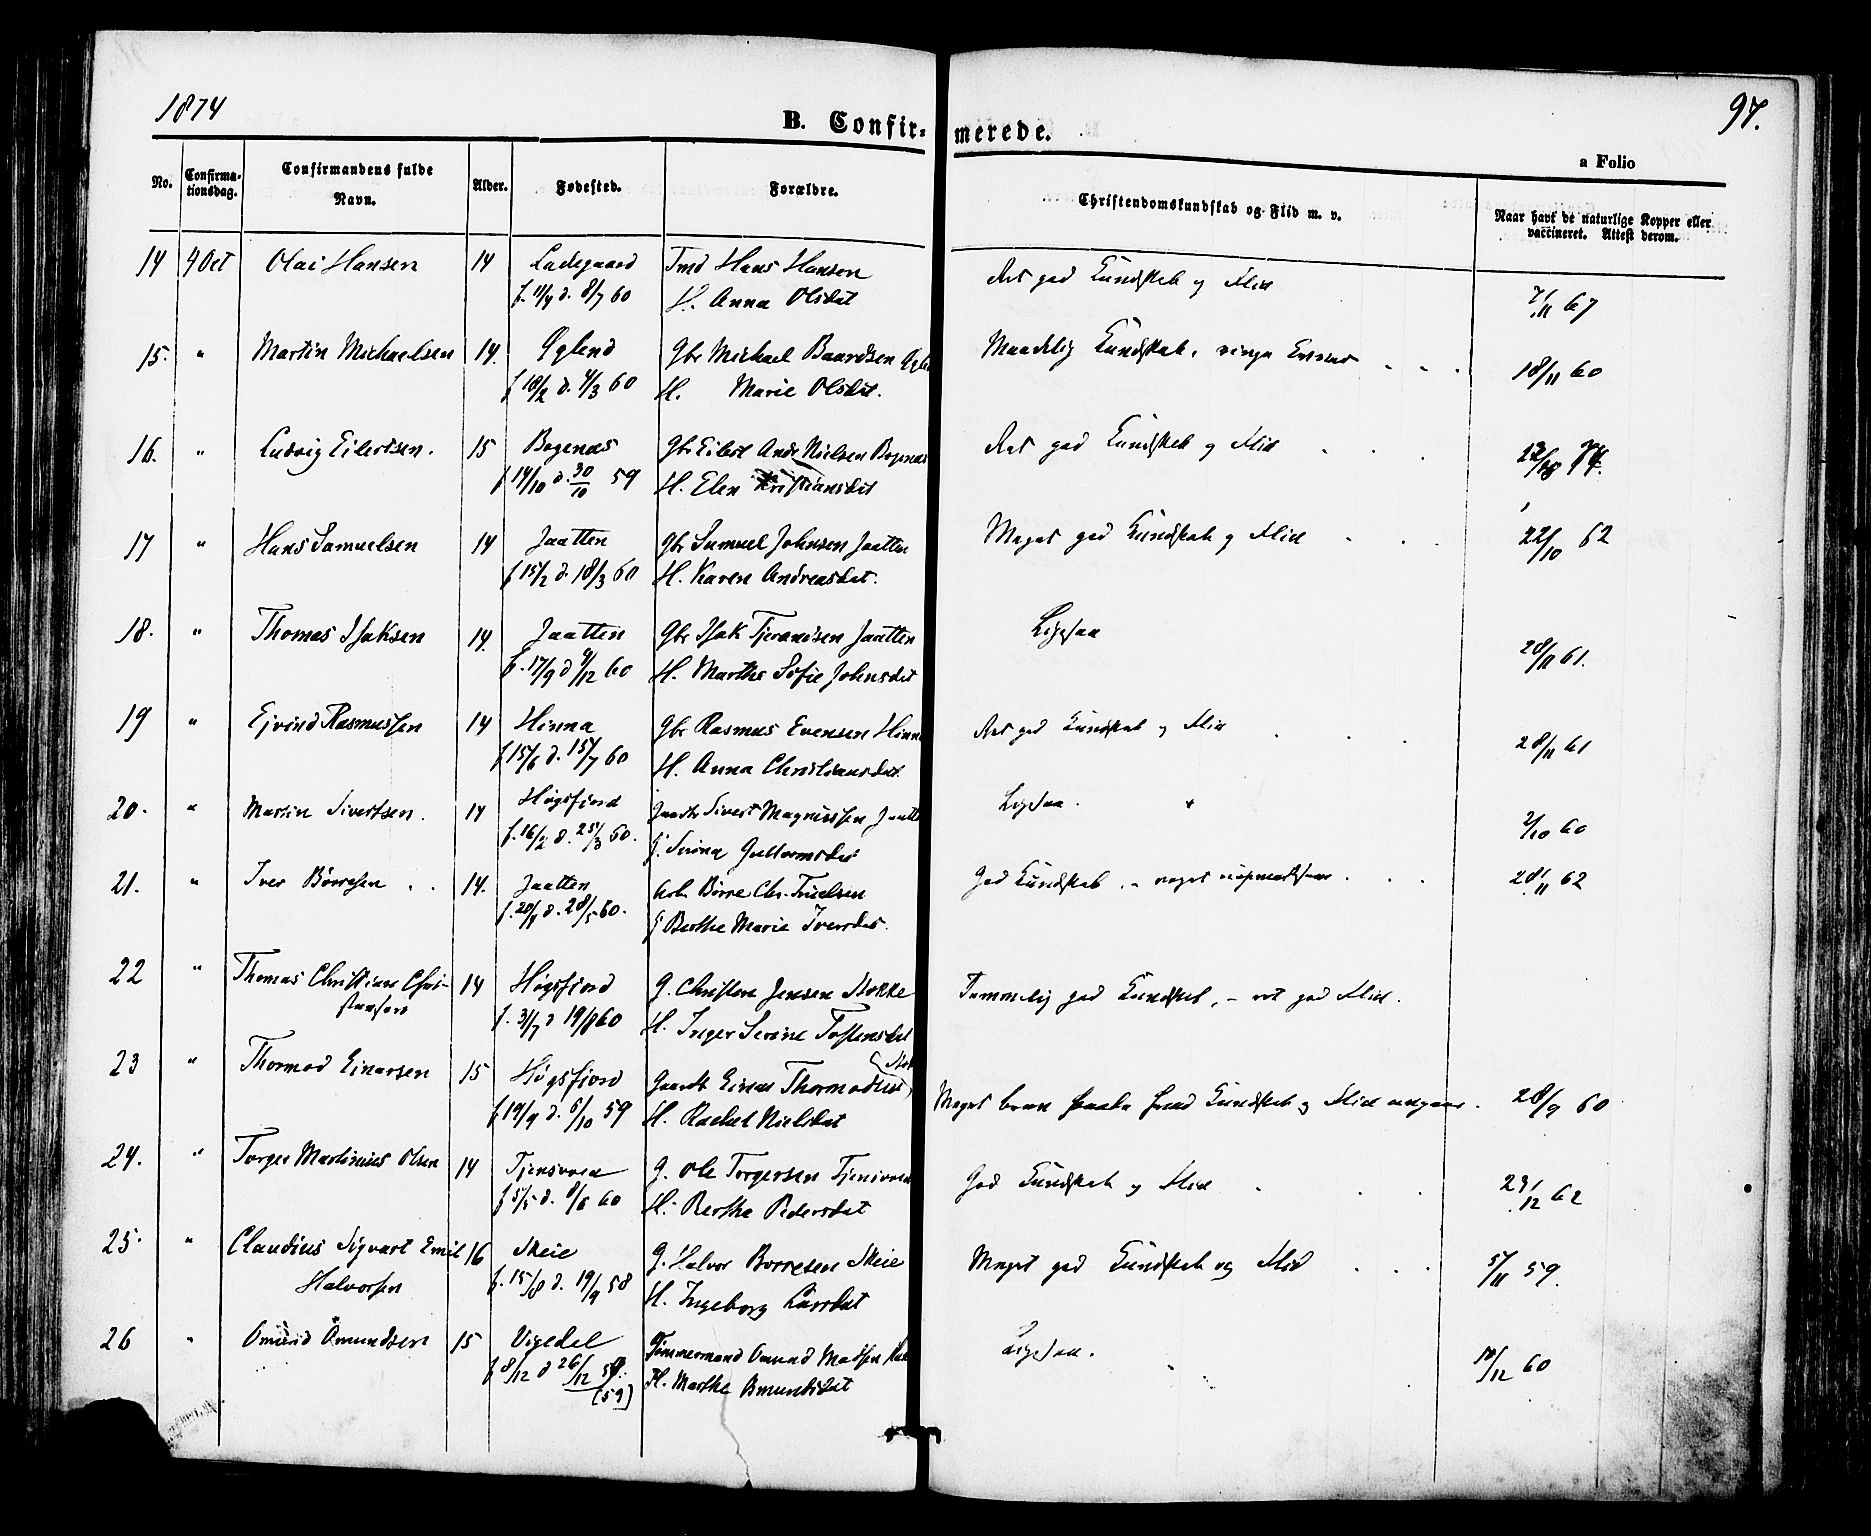 1874
B. Confir-
merede.
97.
a Folio
No.
Confirma-
tionsdag.
Confirmandens fulde
Navn.
Alder.
Fødested.
Forældre.
Christendomskundskab og Flid m. v.
Naar havt de naturlige Kopper eller
vaccineret. Attest derom.
14 4 Oct Olai Hansen 14 Ladegaard Tmd Hans Hansen Ret god Kundskab og Flid
d. 8/7 60 H. Anna Olsdat 7/11 67
15. " Martin Michaelsen 14. Øglend Gbr Michael Baardsen Maadelig Kundskab, ringe Evner
f 18/2 d. 4/3 60 H. Marie Olsdat. 18/11 60
16. " Ludvig Eilertsen. 15 Bogenæs Gbr Eilert Andr Nielsen Bogenæs Ret god Kundskab og Flid
f 14/10 d. 30/10 59 H. Elen Kristiansdat
17 " Hans Samuelsen 14 Jaatten Gbr Samuel Johnsen Jaatten Meget god Kundskab og Flid 22/10 62
f 15/2 d. 18/3 60 H. Karen Andreasdat.
18. " Thomas Isaksen 14. Jaatten Gbr Isak Tjerandsen Jaatten Ligesaa
f. 17/9 d 9/12 60 H. Marthe Sofie Johnsdat 28/11 61.
19 " Ejvind Rasmussen 14 Hinna Gbr Rasmus Evensen Hinna Ret god Kundskab og Flid
f 15/6 d. 15/7 60 H. Anna Christiansdat 28/11 61
20. " Martin Sivertsen. 14 Høgsfjord Sivert Magnussen Jaatten Ligesaa. "
f. 16/2 d. 25/3 60. Serina Guttormsdat 2/10 60
21. " Iver Børresen 14. Jaatten Arb. Børre Chr. Truelsen God Kundskab, - noget uopmærksom
d. 28/5 60. Berthe Marie Iversdat. 28/11 62
22 " Thomas Christian Chri- 14 Høgsfjord G. Christen Jensen Stokke Temmelig god Kundskab, - ret god Flid.
stensen f. 31/7 d 19/8 60 H. Inger Serine Tostensdat
23 " Thormod Einarsen 15 Høgsfjord Gaardb Einar Thormodsen
f 19/9 d. 6/10 59 H. Rachel Nielsdat Kundskab og Flid 28/9 60
24. " Torger Martinius Olsen 14 Tjensvoen G. Ole Torgersen Tjensvoen God Kundskab og Flid
f 5/5 d. 8/6 60 H. Berthe Pedersdat 29/12 62
25. " Claudius Sigvart Emil 16 Skeie G. Halvor Borresen Skeie Meget god Kundskab og Flid
Halvorsen f. 15/8 d. 19/9 58 H. Ingeborg Larsdat 5/11 59.
26 " Omund Omundsen 15 Vigedal Tømmermand Omund Madsen Ligesaa.
f 8/12 d 26/12 59. H. Marthe Omundsdat 10/12 60
(59)